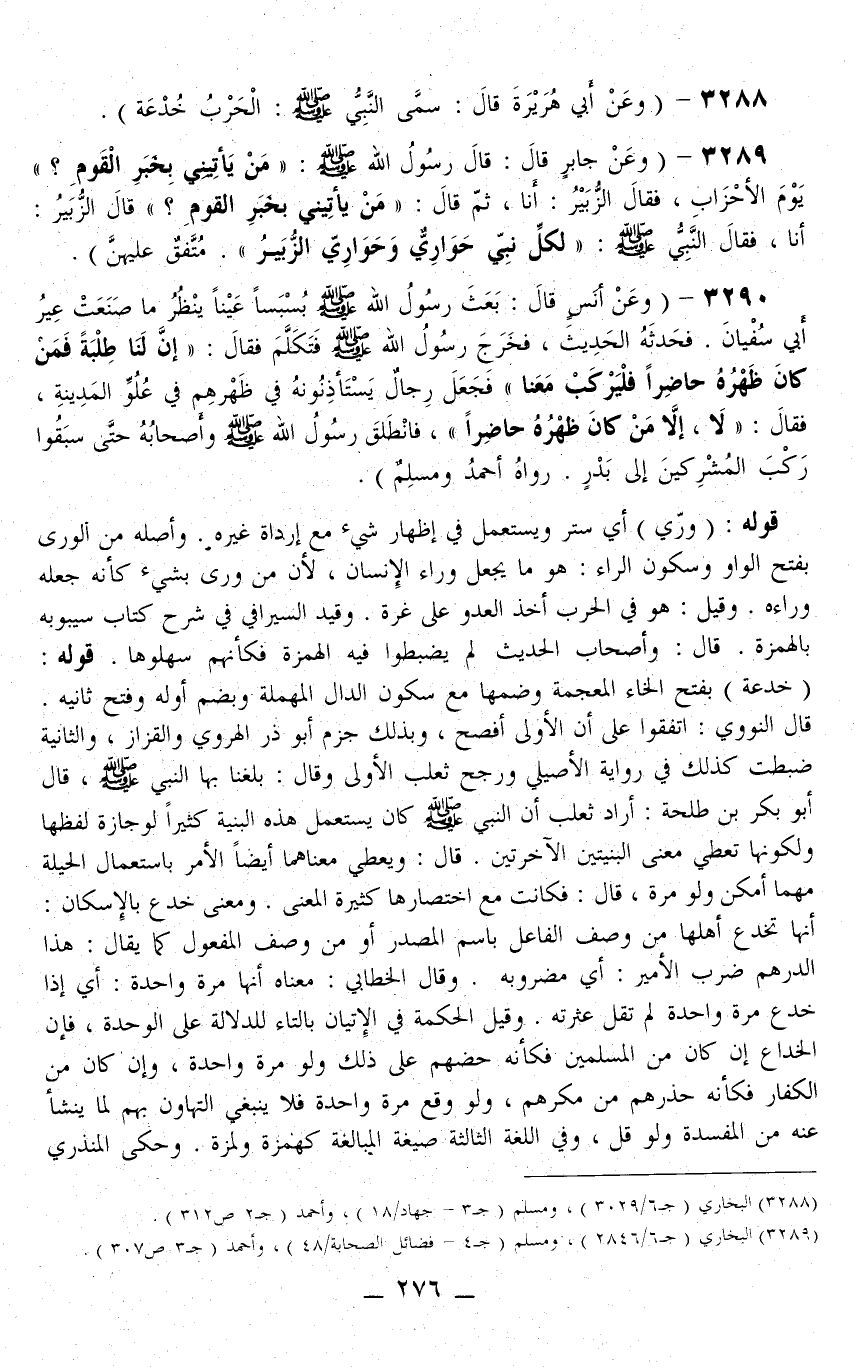 ٣٢٨٨ – ( وعَنْ أَبي هُرَيْرَةَ قالَ : سمَّى النَّبِيُّ ﷺ : الْحَرْبُ خُدْعَة ) .
٣٢٨٩ – ( وعَنْ جابرٍ قالَ : قالَ رسُولُ الله ﷺ : « مَنْ يَأتِيني بِخَبَرِ الْقَومِ ؟ »
يَوْمَ الأحْزَابِ ، فقالَ الزُّبَيْرُ : أنا ، ثمّ قالَ : « مَنْ يأتيني بخَبَرِ القومِ ؟ » قالَ الزُّبَيرُ :
أنا ، فقالَ النَّبِيُّ ﷺ : « لكلِّ نبيّ حَوَاريٌّ وَحَوَاريّ الزُّبَيـرُ » . مُتَّفقٌ عليهنَّ ) .
٣٢٩٠ – ( وعَنْ أنَسٍ قالَ : بَعَثَ رسُولُ الله ﷺ بُسْبَساً عَيْناً ينْظُرُ ما صنَعَتْ عِيرُ
أَبي سُفْيانَ . فحَدثَهُ الحَدِيثَ ، فخَرَجَ رسُولُ الله ﷺ فَتَكَلَّمَ فقالَ : « إنَّ لَنَا طِلْبَةً فَمَنْ
كانَ ظَهْرُهُ حاضِراً فلْيَرْكَبْ مَعَنا » فَجَعَلَ رِجالٌ يَسْتَأذِنُونهُ في ظَهْرِهِم في عُلُوِّ المَدِينةِ ،
فقالَ : « لَا ، إلَّا مَنْ كانَ ظَهْرُهُ حاضِراً » ، فانْطلَقَ رسُولُ الله ﷺ وأَصحابُهُ حتَّى سبَقُوا
رَكْبَ المُشْرِكينَ إلى بَدْرٍ . رواهُ أحمدُ ومسلِمٌ ) .
قوله : ( ورّي ) أي ستر ويستعمل في إظهار شيء مع إرداة غيره . وأصله من الورى
بفتح الواو وسكون الراء : هو ما يجعل وراء الإنسان ، لأن من ورى بشيء كأنه جعله
وراءه . وقيل : هو في الحرب أخذ العدو على غرة . وقيد السيرافي في شرح كتاب سيبويه
بالهمزة . قال : وأصحاب الحديث لم يضبطوا فيه الهمزة فكأنهم سهلوها . قوله :
( خدعة ) بفتح الخاء المعجمة وضمها مع سكون الدال المهملة وبضم أوله وفتح ثانيه .
قال النووي : اتفقوا على أن الأولى أفصح ، وبذلك جزم أبو ذر الهروي والقزاز ، والثانية
ضبطت كذلك في رواية الأصيلي ورجح ثعلب الأولى وقال : بلغنا بها النبي ﷺ ، قال
أبو بكر بن طلحة : أراد ثعلب أن النبي ﷺ كان يستعمل هذه البنية كثيراً لوجازة لفظها
ولكونها تعطي معنى البنيتين الآخرتين . قال : ويعطي معناهما أيضاً الأمر باستعمال الحيلة
مهما أمكن ولو مرة ، قال : فكانت مع اختصارها كثيرة المعنى . ومعنى خدع بالإسكان :
أنها تخدع أهلها من وصف الفاعل باسم المصدر أو من وصف المفعول كما يقال : هذا
الدرهم ضرب الأمير : أي مضروبه . وقال الخطابي : معناه أنها مرة واحدة : أي إذا
خدع مرة واحدة لم تقل عثرته . وقيل الحكمة في الإتيان بالتاء للدلالة على الوحدة ، فإن
الخداع إن كان من المسلمين فكأنه حضهم على ذلك ولو مرة واحدة ، وإن كان من
الكفار فكأنه حذرهم من مكرهم ، ولو وقع مرة واحدة فلا ينبغي التهاون بهم لما ينشأ
عنه من المفسدة ولو قل ، وفي اللغة الثالثة صيغة المبالغة كهمزة ولمزة . وحكى المنذري
(٣٢٨٨) البخاري ( جـ٦/٣٠٢٩ ) ، ومسلم ( جـ٣ – جهاد/١٨ ) ، وأحمد ( جـ٢ ص٣١٢ ) .
(٣٢٨٩) البخاري ( جـ٦/٢٨٤٦ ) ، ومسلم ( جـ٤ – فضائل الصحابة/٤٨ ) ، وأحمد ( جـ٣ ص٣٠٧ ) .
— ٢٧٦ —